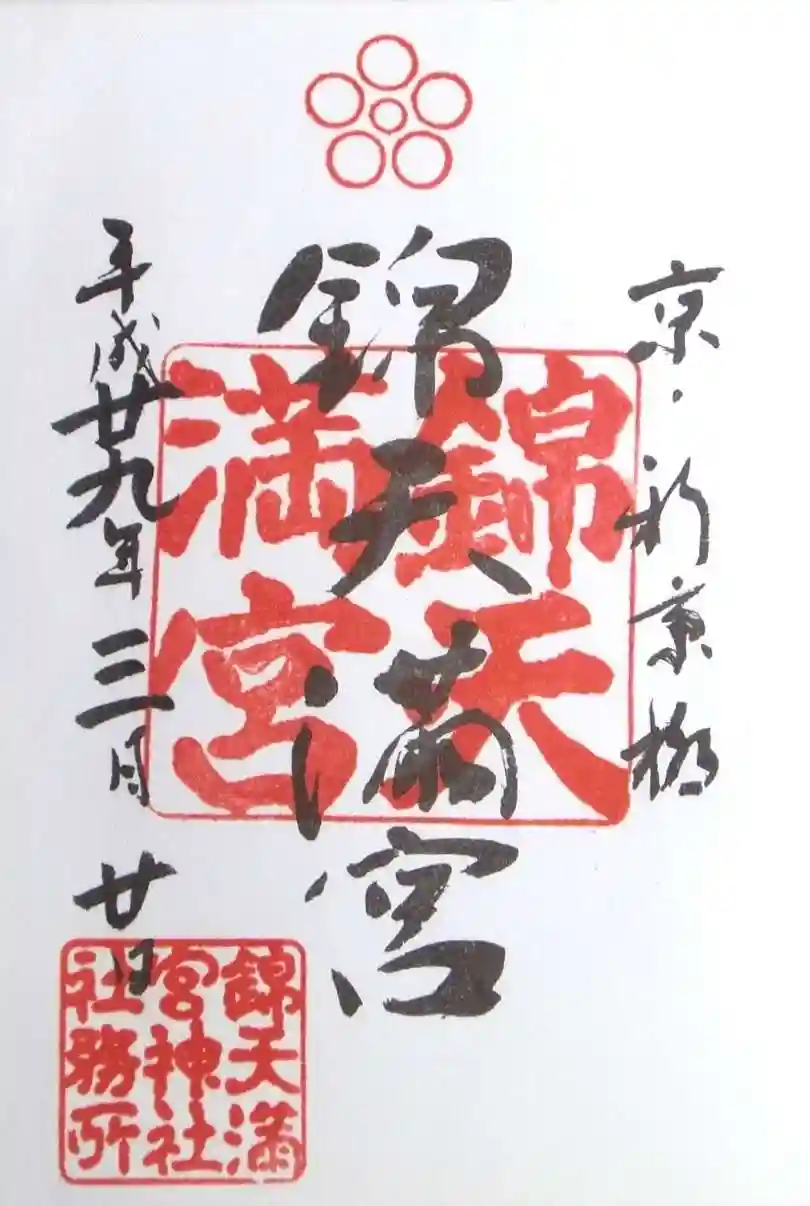 京・新京極
錦天満宮
錦天
満宮
平成廿九年三月廿日
錦天満
宮神社
社務所